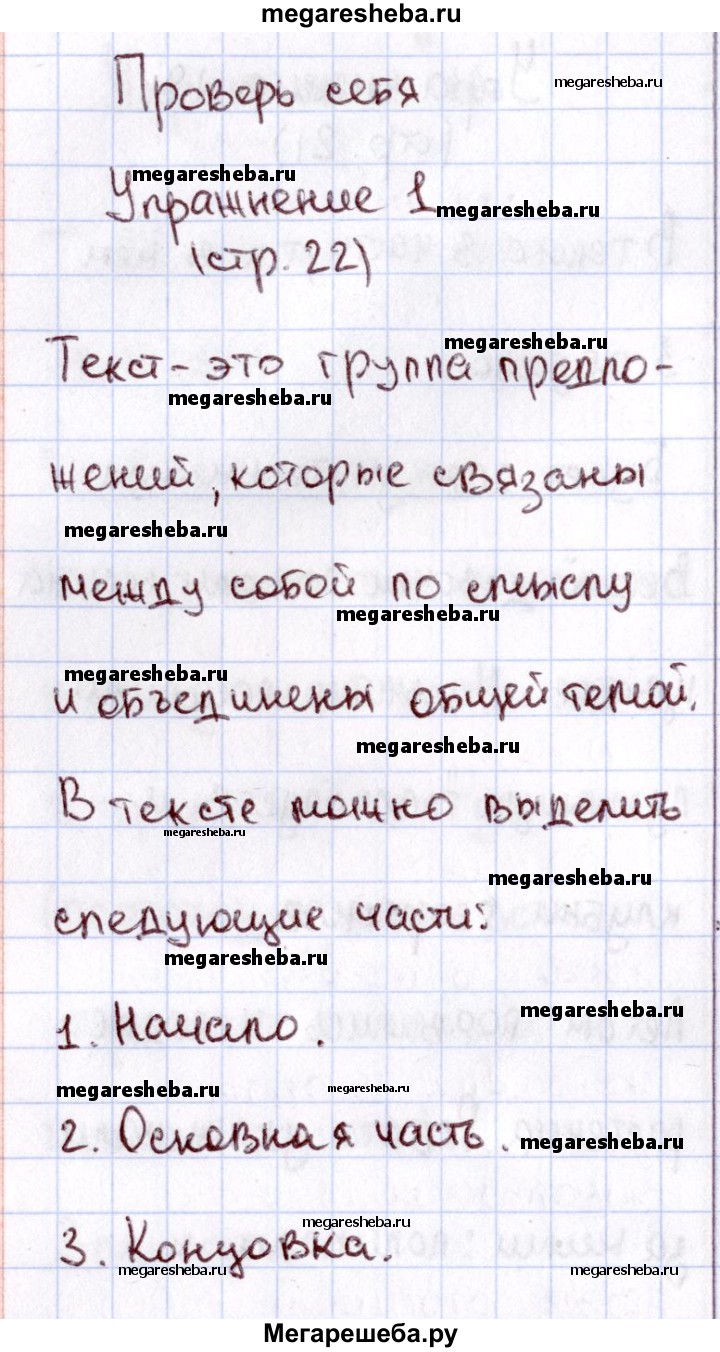 megaresheba.ru
Проверь себя
megaresheba.ru
megaresheba.ru
Упражнение 1
megaresheba.ru
(стр. 22)
megaresheba.ru
Текст - это группа предло-
megaresheba.ru
жений, которые связаны
megaresheba.ru
между собой по смыслу
megaresheba.ru
megaresheba.ru
и объединены общей темой.
megaresheba.ru
В тексте можно выделить
megaresheba.ru
megaresheba.ru
следующие части:
megaresheba.ru
megaresheba.ru
1. Начало.
megaresheba.ru megaresheba.ru
2. Основная часть.
megaresheba.ru
megaresheba.ru
3. Концовка.
megaresheba.ru megaresheba.ru
Мегарешеба.ру